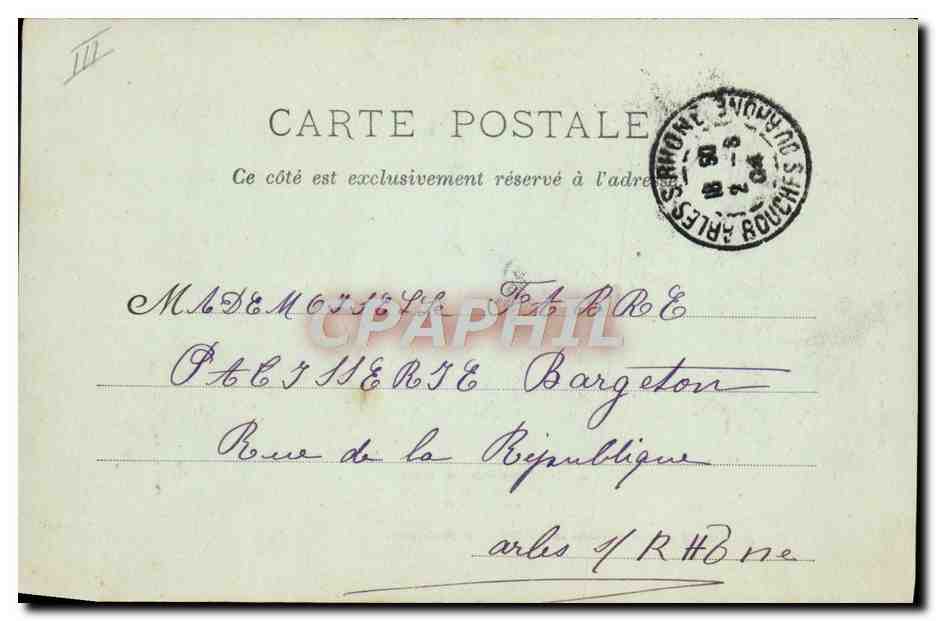 III
CARTE POSTALE
Ce côté est exclusivement réservé à l'adresse
ARLES-S-RHONE BOUCHES DU RHONE
18 30
2 - 8
04
MADEMOISELLE FABRE
PATISSERIE Bargeton
Rue de la République
arles s/ RHône
CPAPHIL